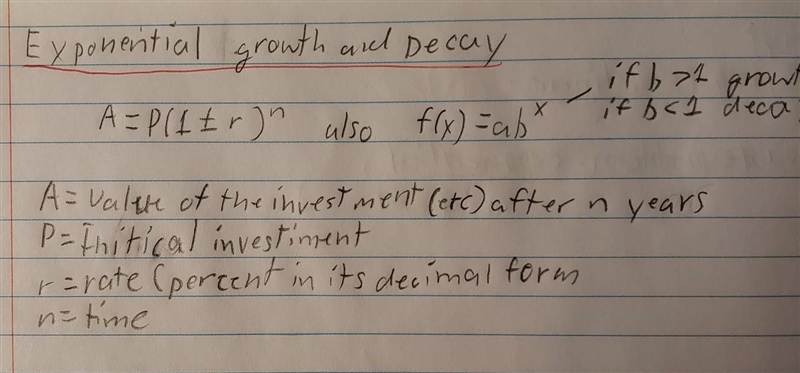 Exponential growth and Decay
if b >1 growt
A = P(1 ± r)ⁿ also f(x) = abˣ
if b < 1 deca
A = value of the investment (etc) after n years
P = Initical investiment
r = rate (percent in its decimal form
n = time